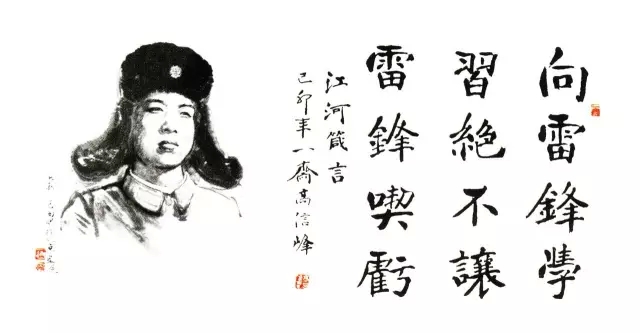 向雷鋒學
習絕不讓
雷鋒喫虧
江河箴言
己卯年八齋高信峰